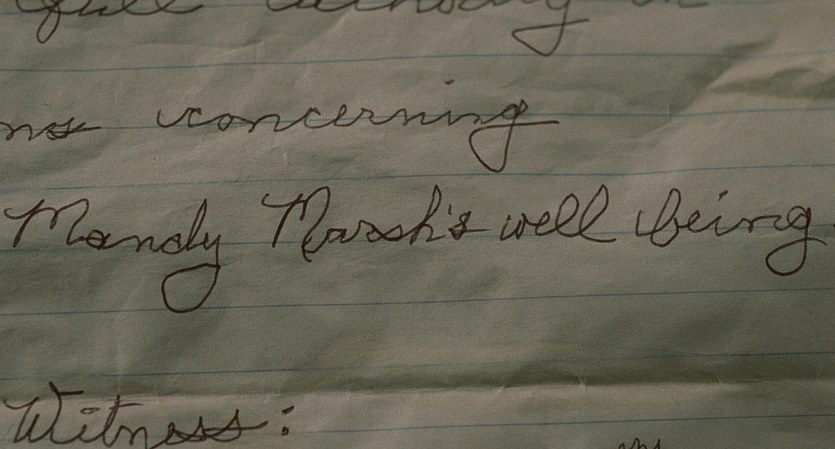 full authority in
ns concerning
Mandy Marsh's well being
Witness: